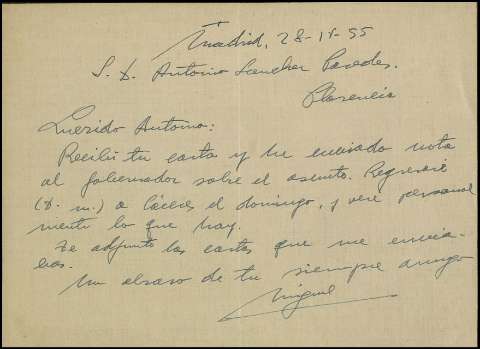 Madrid, 28-IV-55
S. D. Antonio Sanchez Paredes.
Plasencia
Querido Antonio:
Recibí tu carta y he enviado nota
al gobernador sobre el asunto. Regresaré
(D. m.) a Cáceres el domingo, y veré personal
mente lo que hay.
Te adjunto las cartas que me envia-
bas.
Un abrazo de tu siempre amigo
Miguel